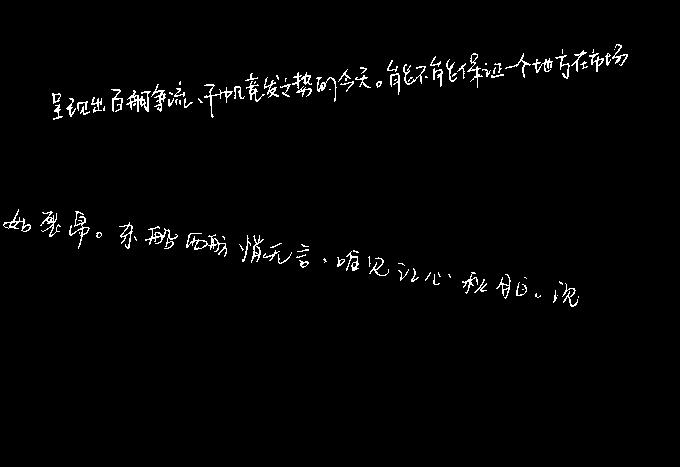 呈现出百舸争流、千帆竞发之势的今天。能不能保证一个地方在市场
如裂帛。东船西舫悄无言，唯见江心秋月白。沉